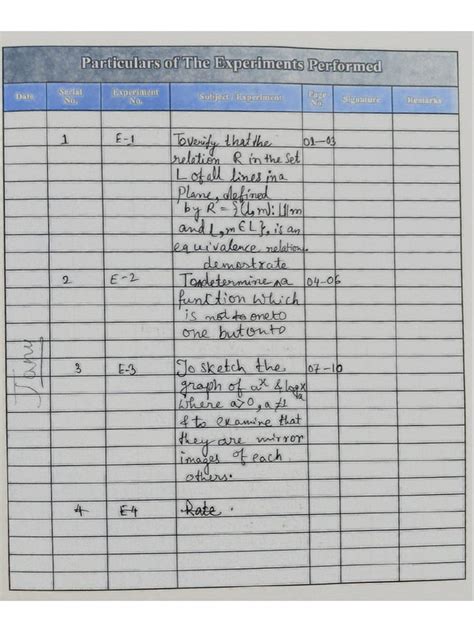 Particulars of The Experiments Performed
Date Serial No. Experiment No. Subject / Experiment Page No. Signature Remarks
1 E-1 To verify that the 01-03
relation R in the Set
L of all lines in a
Plane, defined
by R = {(l,m): l||m
and l,m ∈ L}. is an
equivalence relation.
demostrate
2 E-2 To determine a 04-06
function which
is not to one to
one but onto
3 E-3 To sketch the 07-10
graph of a^x & log_a x
where a>0, a≠1
& to examine that
they are mirror
images of each
others.
4 E-4 Rate.